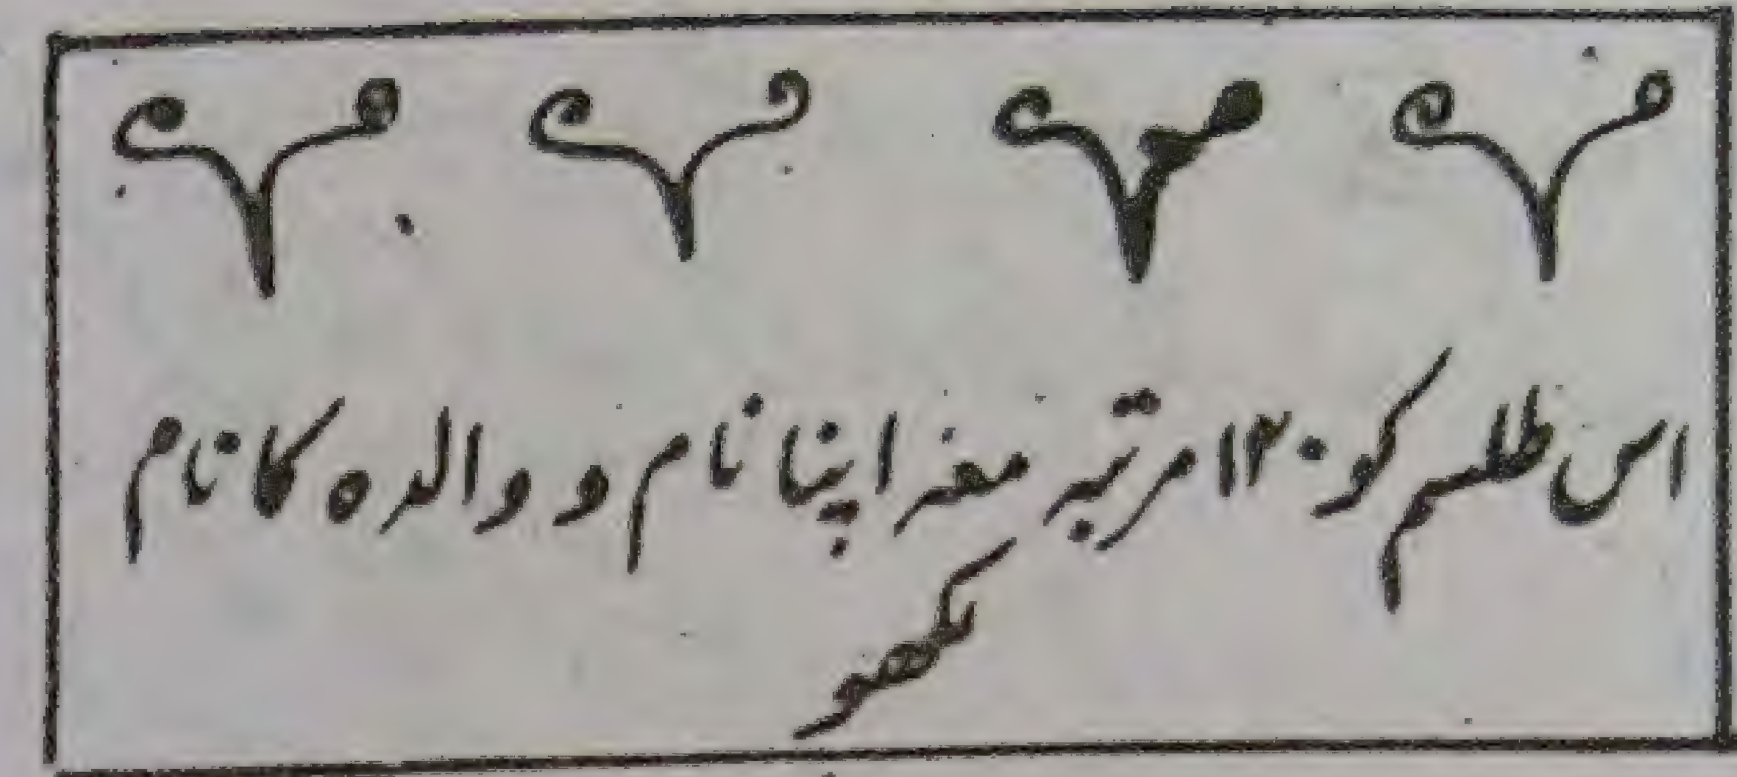 اس طلسم کو ۱۳۰ مرتبہ معہ اپنا نام و والدہ کا نام
لکھو